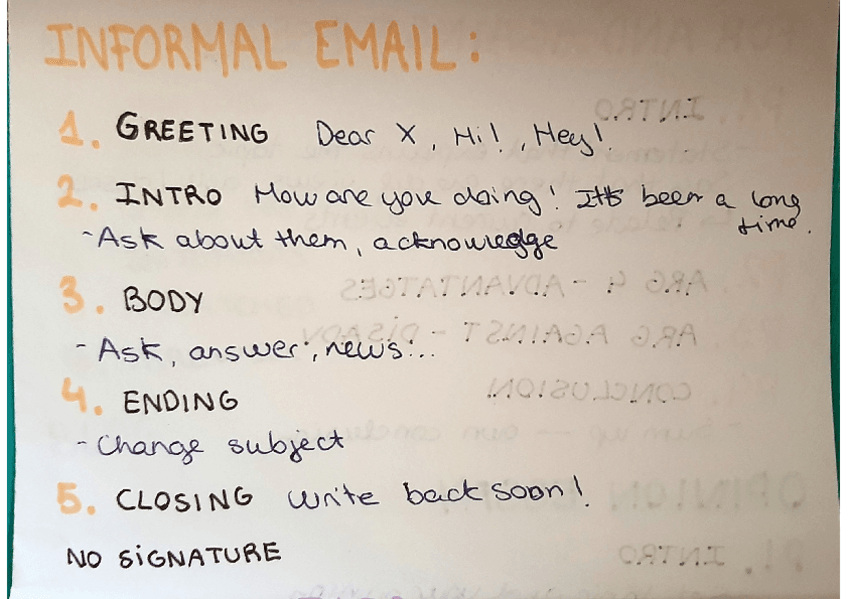 INFORMAL EMAIL:
1. GREETING Dear X, Hi!, Hey!
2. INTRO How are you doing! It's been a long
time.
- Ask about them, acknowledge
3. BODY
- Ask, answer, news...
4. ENDING
- Change subject
5. CLOSING Write back soon!
NO SIGNATURE